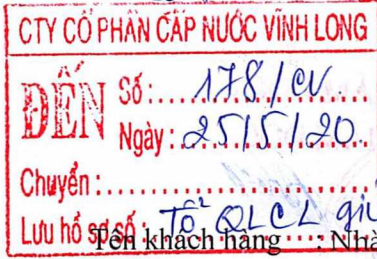 CTY CỔ PHẦN CẤP NƯỚC VĨNH LONG
ĐẾN
Số: 178/CV
Ngày: 25/5/20.
Chuyển:
Lưu hồ sơ số: Tổ QLCL giữ
Tên khách hàng : Nhà